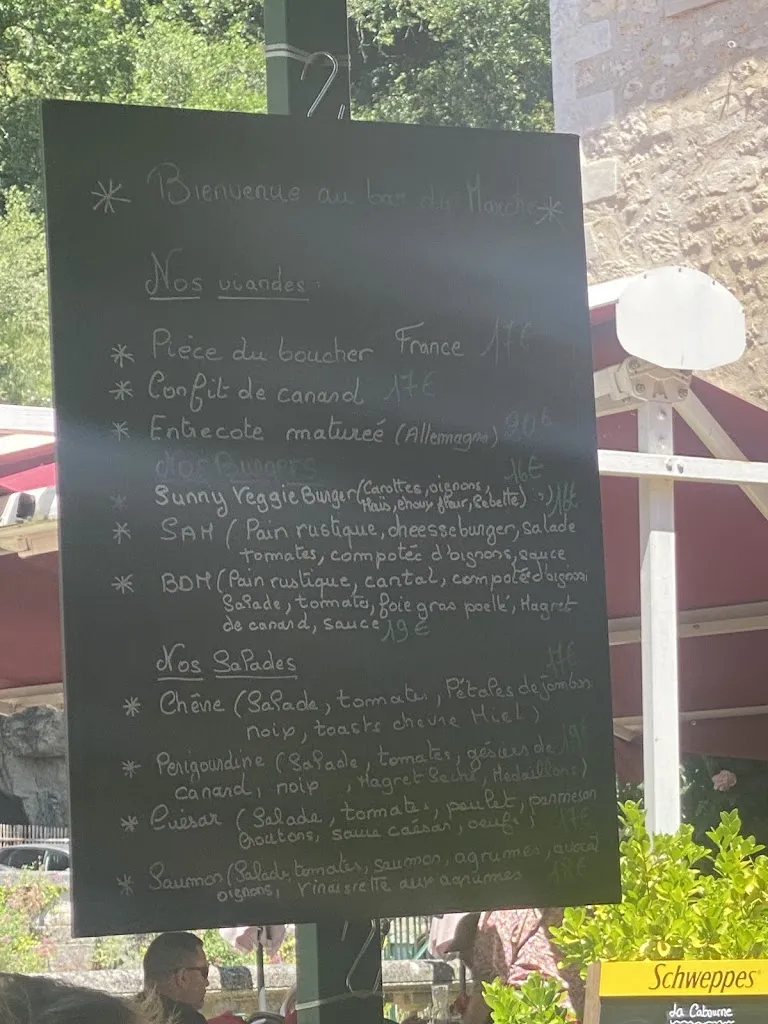 * Bienvenue au bar du Marché *
Nos viandes :
* Pièce du boucher France 17€
* Confit de canard 17€
* Entrecote matureé (Allemagne) 20€
Nos Burgers 16€
* Sunny Veggie Burger (Carottes, oignons,
Maïs, choux fleur, Bebette)
* SAM (Pain rustique, cheeseburger, salade
tomates, compotée d'oignons, sauce
* BDM (Pain rustique, cantal, compotée d'oignons
Salade, tomates, foie gras poellé, Magret
de canard, sauce 19€
Nos Salades 17€
* Chèvre (Salade, tomates, Pétales de jambon
noix, toasts chèvre Miel)
* Perigourdine (Salade, tomates, gésiers de 19€
canard, noix, Magret Seché, Medaillons)
* Cuésar (Salade, tomates, poulet, parmesan
Croutons, sauce caésar, oeufs) 17€
* Saumon (Salade, tomates, saumon, agrumes, avocat
oignons, vinaigrette aux agrumes 18€
Schweppes
La Cabourne